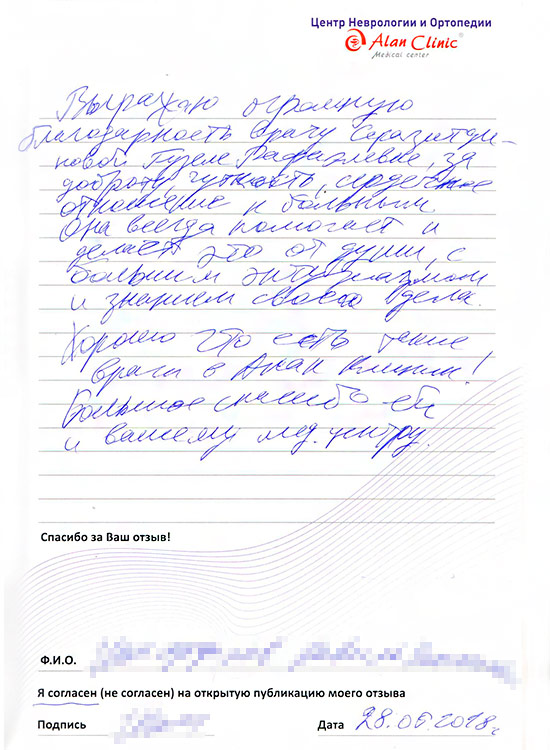 Центр Неврологии и Ортопедии
Alan Clinic®
Medical center
Выражаю огромную
благодарность врачу
новой Гузеле Рафаэлевне, за
доброту, чуткость, сердечное
отношение к больным.
Она всегда помогает и
делает это от души, с
большим энтузиазмом
и знанием своего дела.
Хорошо что есть такие
врачи в Алан Клиник!
Большое спасибо ей
и вашему мед. центру.
Спасибо за Ваш отзыв!
Ф.И.О.
Я согласен (не согласен) на открытую публикацию моего отзыва
Подпись Дата 28.05.2018г